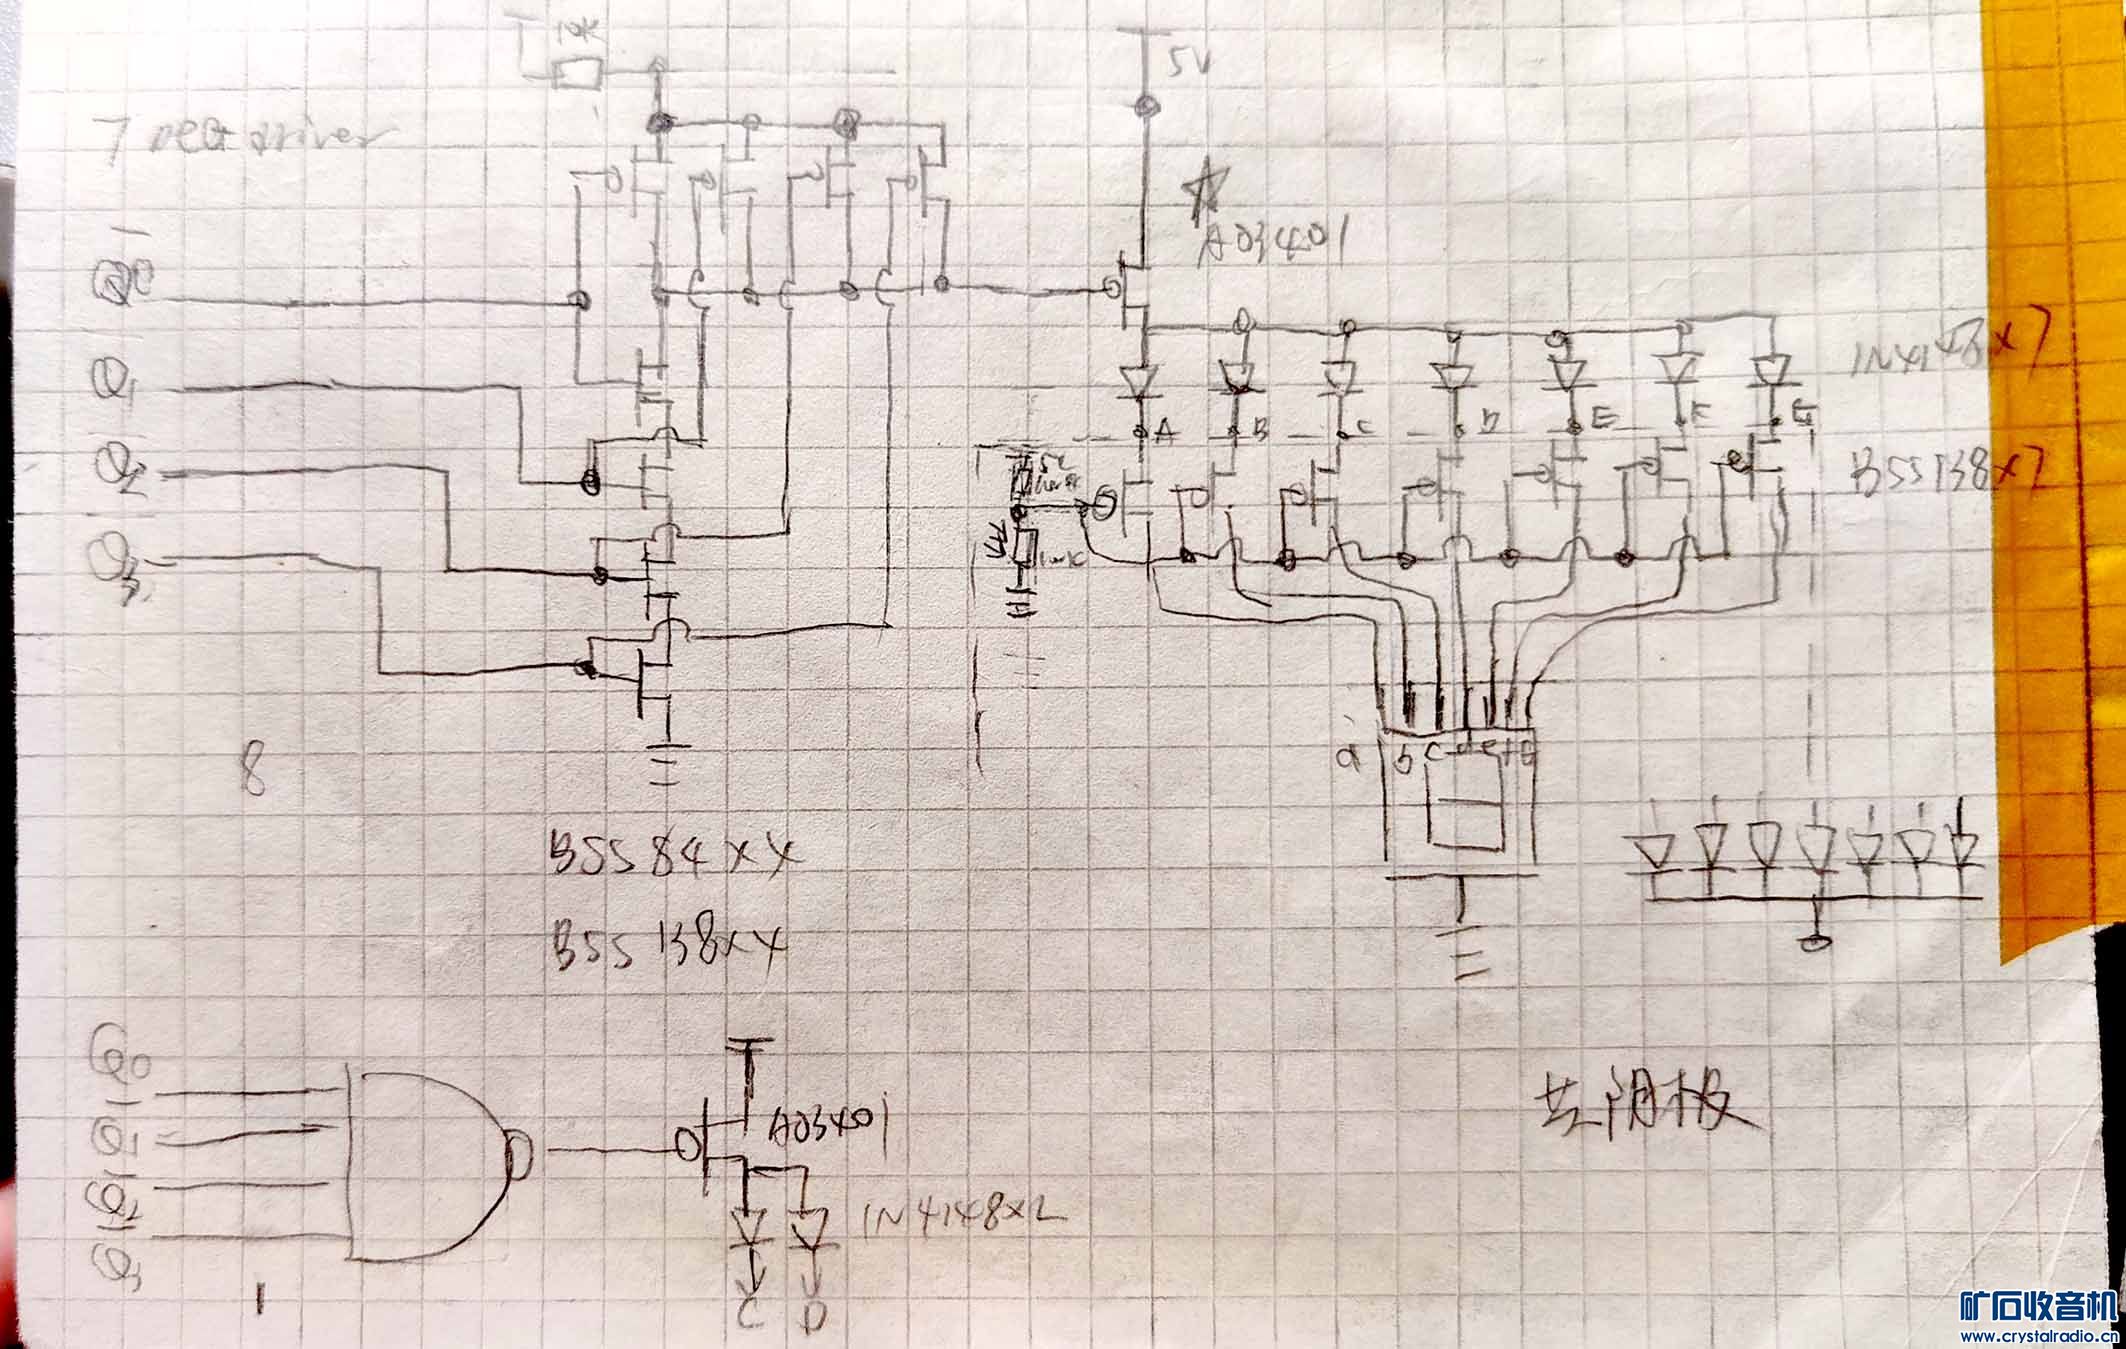 10K
5V
7 seg driver
A03401
Q0
Q1
Q2
Q3
1N4148x7
A B C D E F G
BSS138x7
5V
100K
a b c d e f g
8
BSS84x4
BSS138x4
Q0
Q1
Q2
Q3
A03401
1N4148x2
C D
1
共阴极
矿石收音机
www.crystalradio.cn